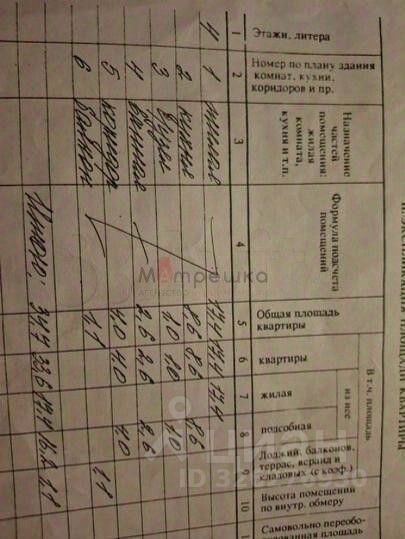 ЭКСПЛИКАЦИЯ ПЛОЩАДИ КВАРТИРЫ
Этажи, литера
Номер по плану здания комнат, кухни, коридоров и пр.
Назначение частей помещения: жилая комната, кухня и т.п.
Формула подсчета помещений
Общая площадь квартиры
В т.ч. площадь
квартиры
из нее
жилая
подсобная
Лоджий, балконов, террас, веранд и кладовых (с коэф.)
Высота помещений по внутр. обмеру
Самовольно переобо-
1 2 3 4 5 6 7 8 9 10 1
4 1 жилая 17,4 17,4 17,4
2 кухня 8,6 8,6 8,6
3 1,0 1,0 1,0
4 ванная 2,6 2,6 2,6
5 коридор 4,0 4,0 4,0
6 балкон 1,1 1,1
Итого: 34,7 33,6 17,4 16,2 1,1
Матрешка
АГЕНТСТВО
циан